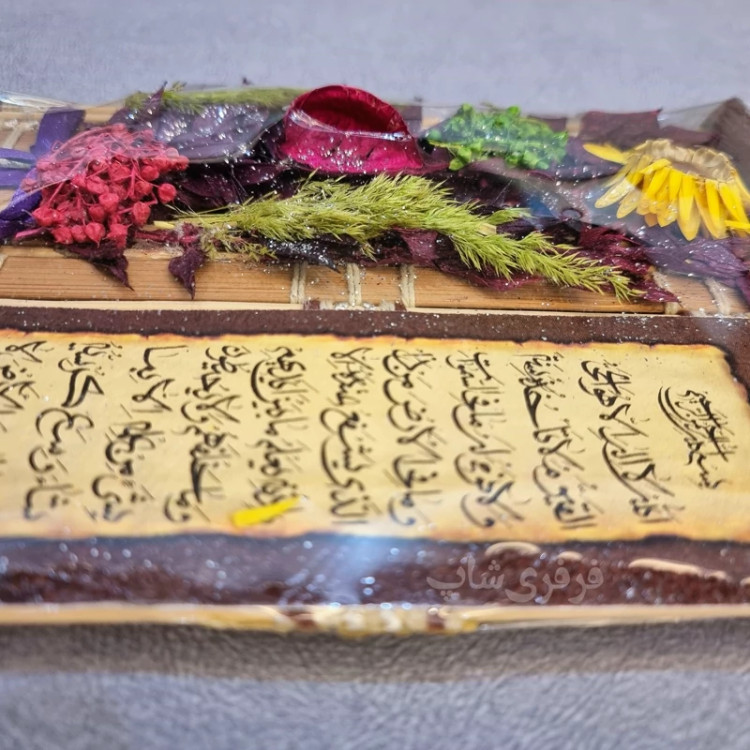 بسم الله الرحمن الرحیم
الله لا اله الا هو الحی
القیوم لا تأخذه سنة
و لا نوم له ما فی السموات
و ما فی الارض من ذا
الذی یشفع عنده الا
باذنه یعلم ما بین ایدیهم
و ما خلفهم و لا یحیطون
بشیء من علمه الا بما
شاء وسع کرسیه
فرفری شاپ